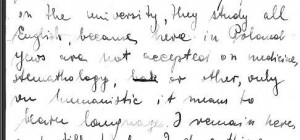 on the university, they study all
English, because here in Poland
yews are not accepted on medicine,
stemathology, or other, only
on humanistic it means to
learn language. I remain here